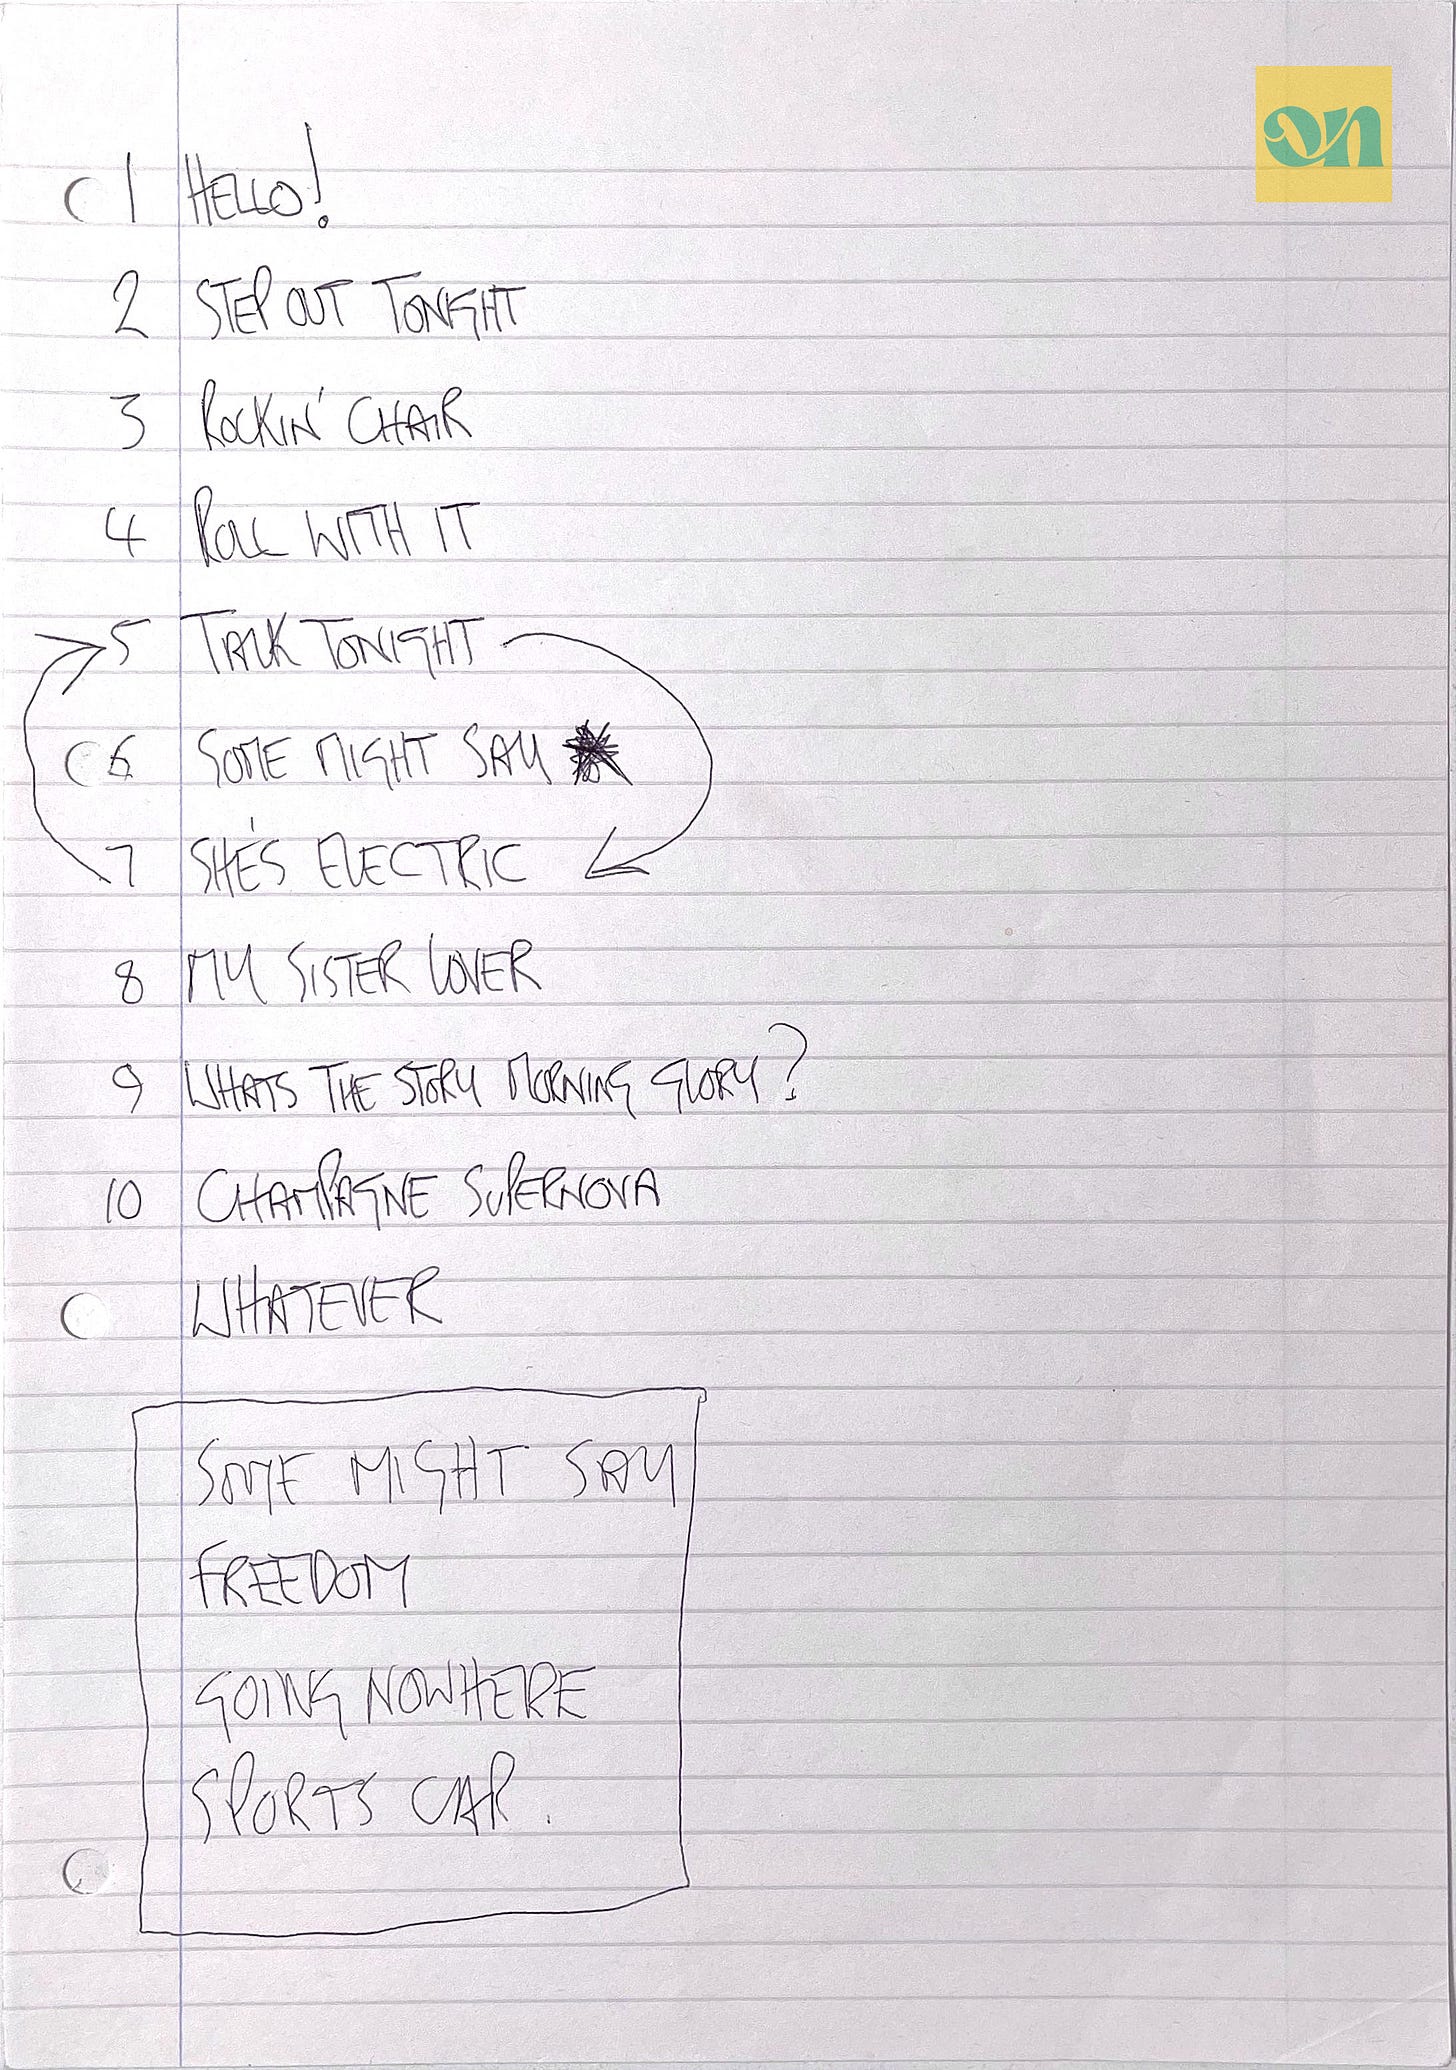 1 HELLO!
2 STEP OUT TONIGHT
3 ROCKIN' CHAIR
4 ROLL WITH IT
5 TALK TONIGHT
6 SOME MIGHT SAY
7 SHE'S ELECTRIC
8 MY SISTER LOVER
9 WHATS THE STORY MORNING GLORY?
10 CHAMPAGNE SUPERNOVA
WHATEVER
SOME MIGHT SAY
FREEDOM
GOING NOWHERE
SPORTS CAR.